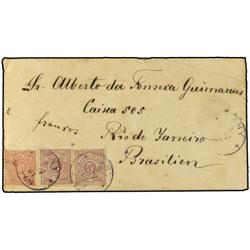 Sr. Alberto da Fonseca Guimarães
Caixa 505
franco.
Rio de Janeiro
Brasilien
5
5